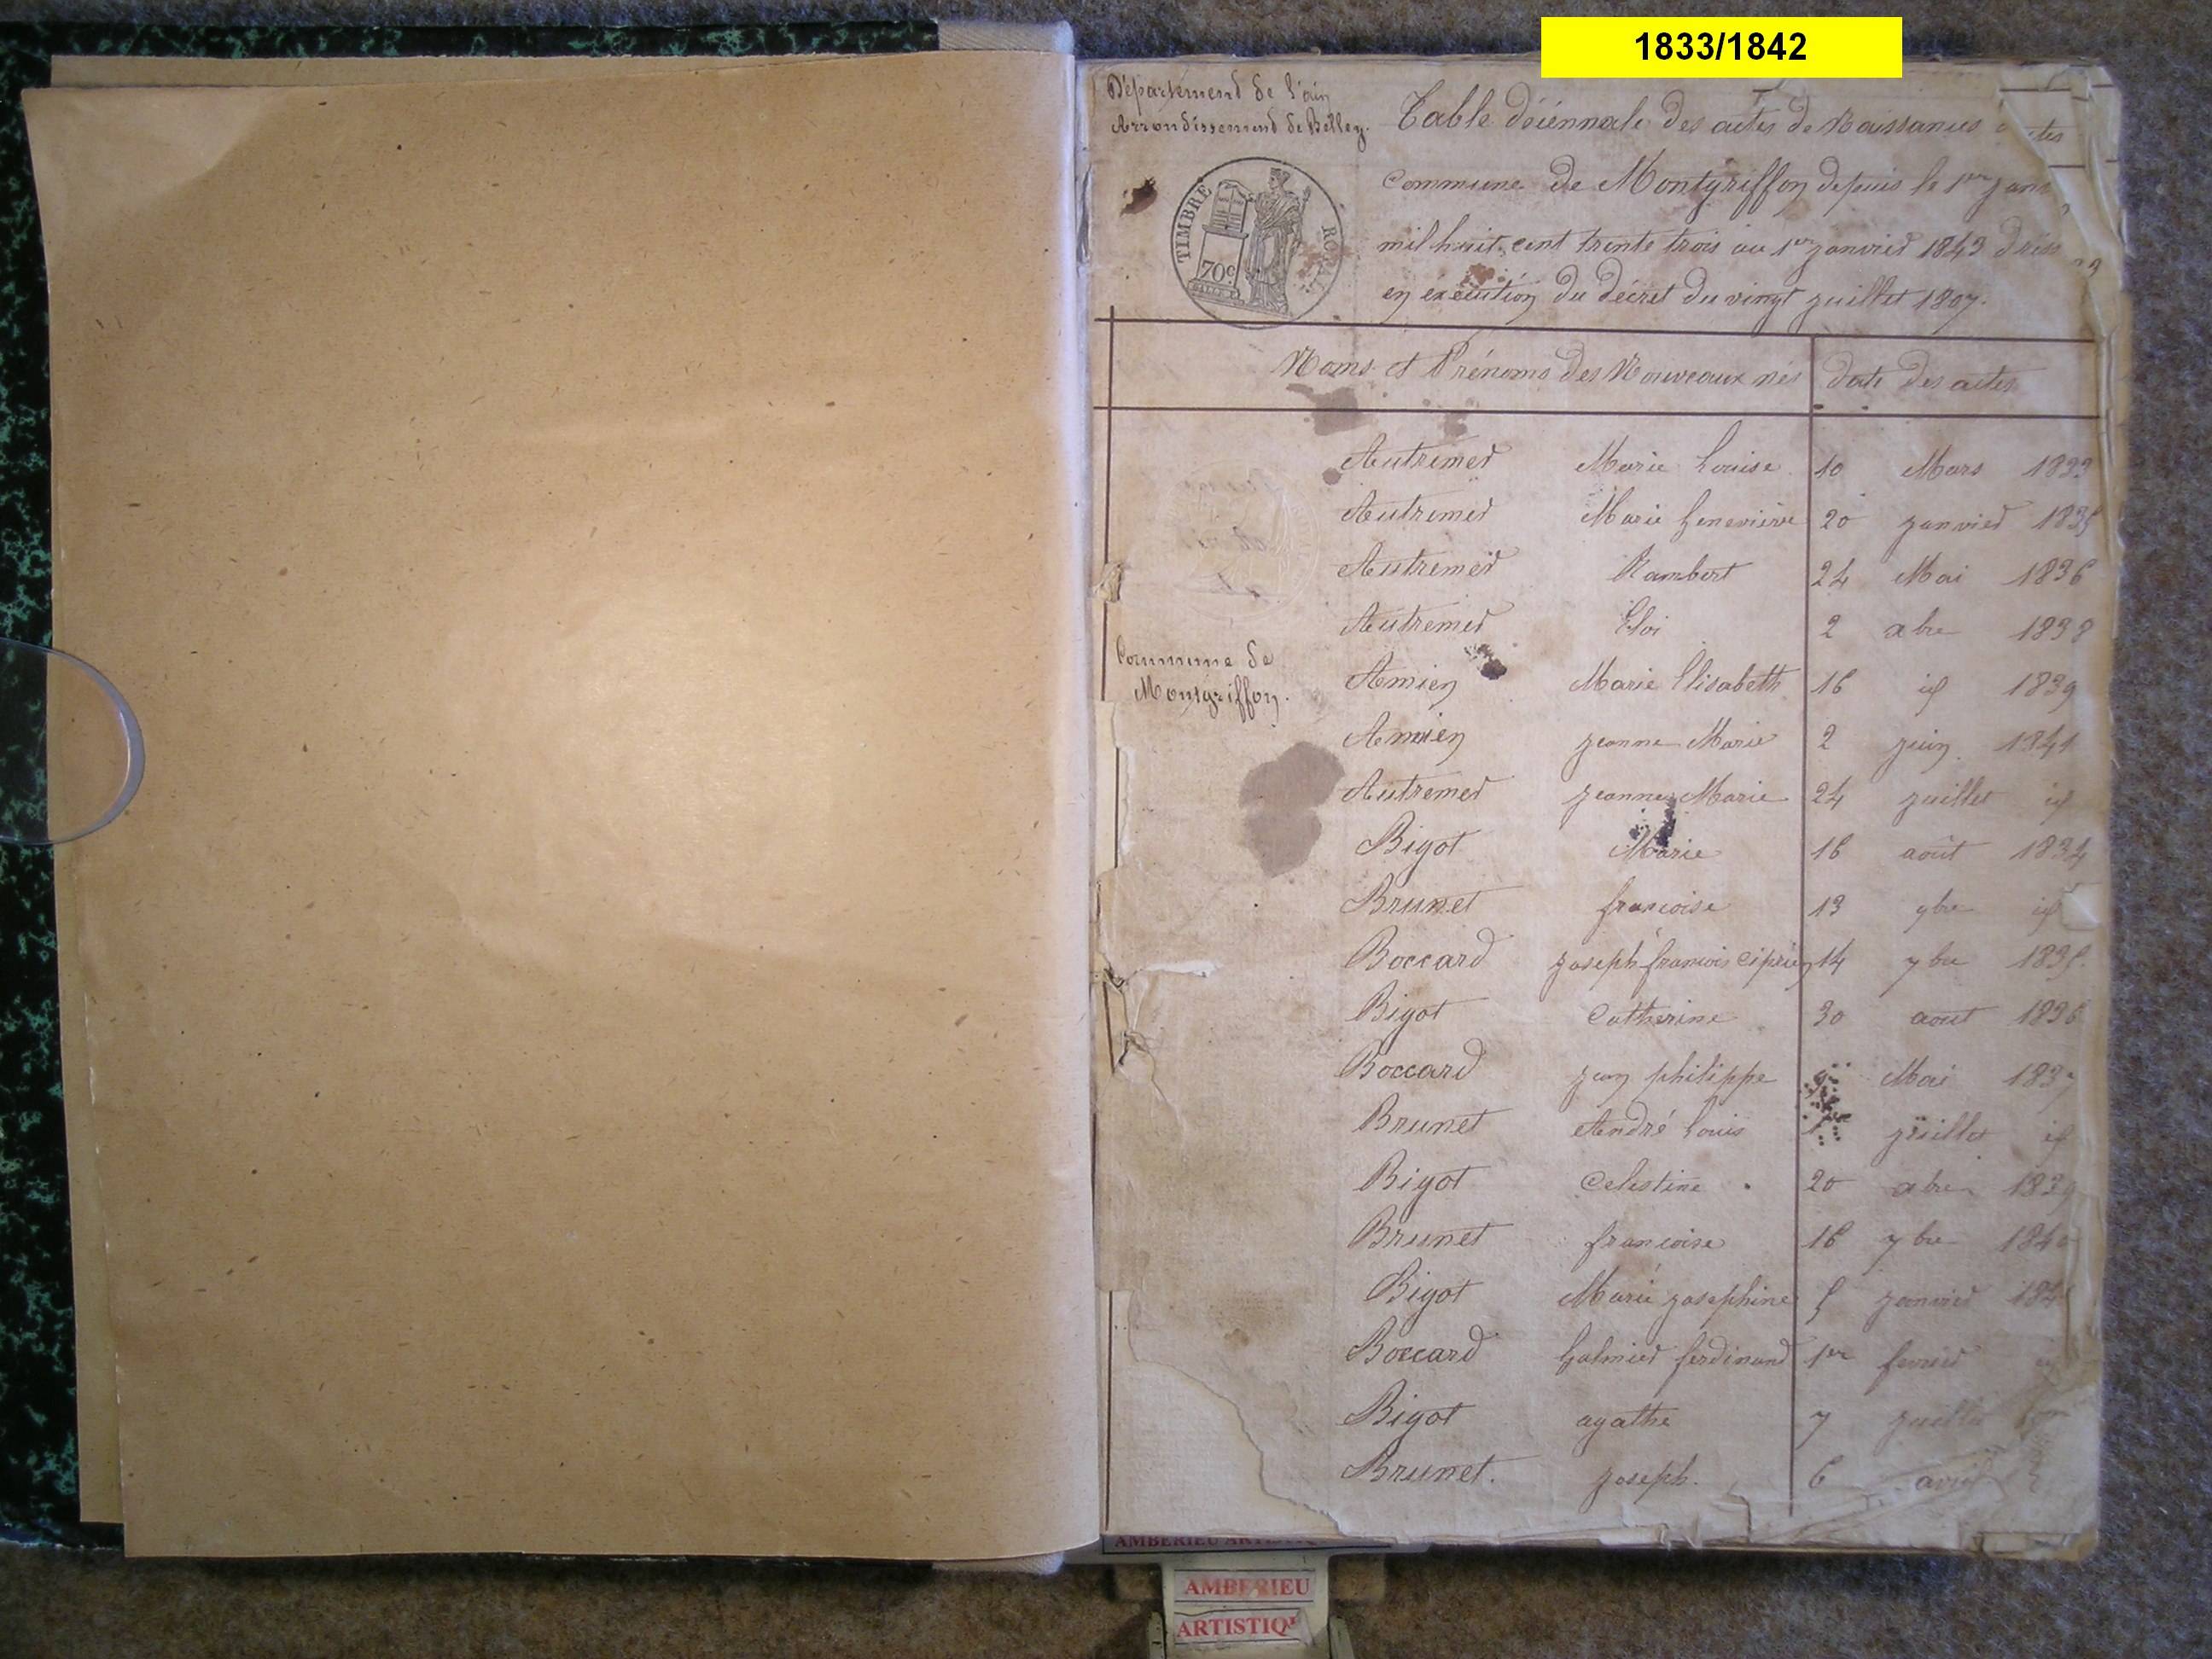 1833/1842
Département de l'ain
Arrondissement de Belley.
Table décennale des actes de Naissances
commune de Montgriffon depuis le 1er janv
mil huit cent trente trois au 1er janvier 1843
en exécution du décret du vingt juillet 1807.
TIMBRE ROYAL
70c
Noms et Prénoms des Nouveaux nés date des actes
Autremer Marie Louise 10 Mars 1833
Autremer Marie Geneviève 20 janvier 1835
Autremer Rambert 24 Mai 1836
Autremer Eloi 2 xbre 1838
Commune de
Montgriffon.
Amien Marie Elisabeth 16 id 1839
Amien jeanne Marie 2 juin 1841
Autremer jeanne Marie 24 juillet id
Bigot Marie 16 août 1834
Brunet francoise 13 9bre id
Boccard joseph francois ciprien 14 7bre 1835.
Bigot Catherine 30 aout 1836
Boccard jean philippe Mai 1837
Brunet André Louis juillet id
Bigot Celestine 20 xbre 1839
Brunet francoise 16 7bre 1840
Bigot Marie josephine 5 janvier 184
Boccard Galmier ferdinand 1er fevrier
Bigot agathe 7 juillet
Brunet. joseph. 6 avril
AMBERIEU ARTISTIQ
AMBERIEU
ARTISTIQU